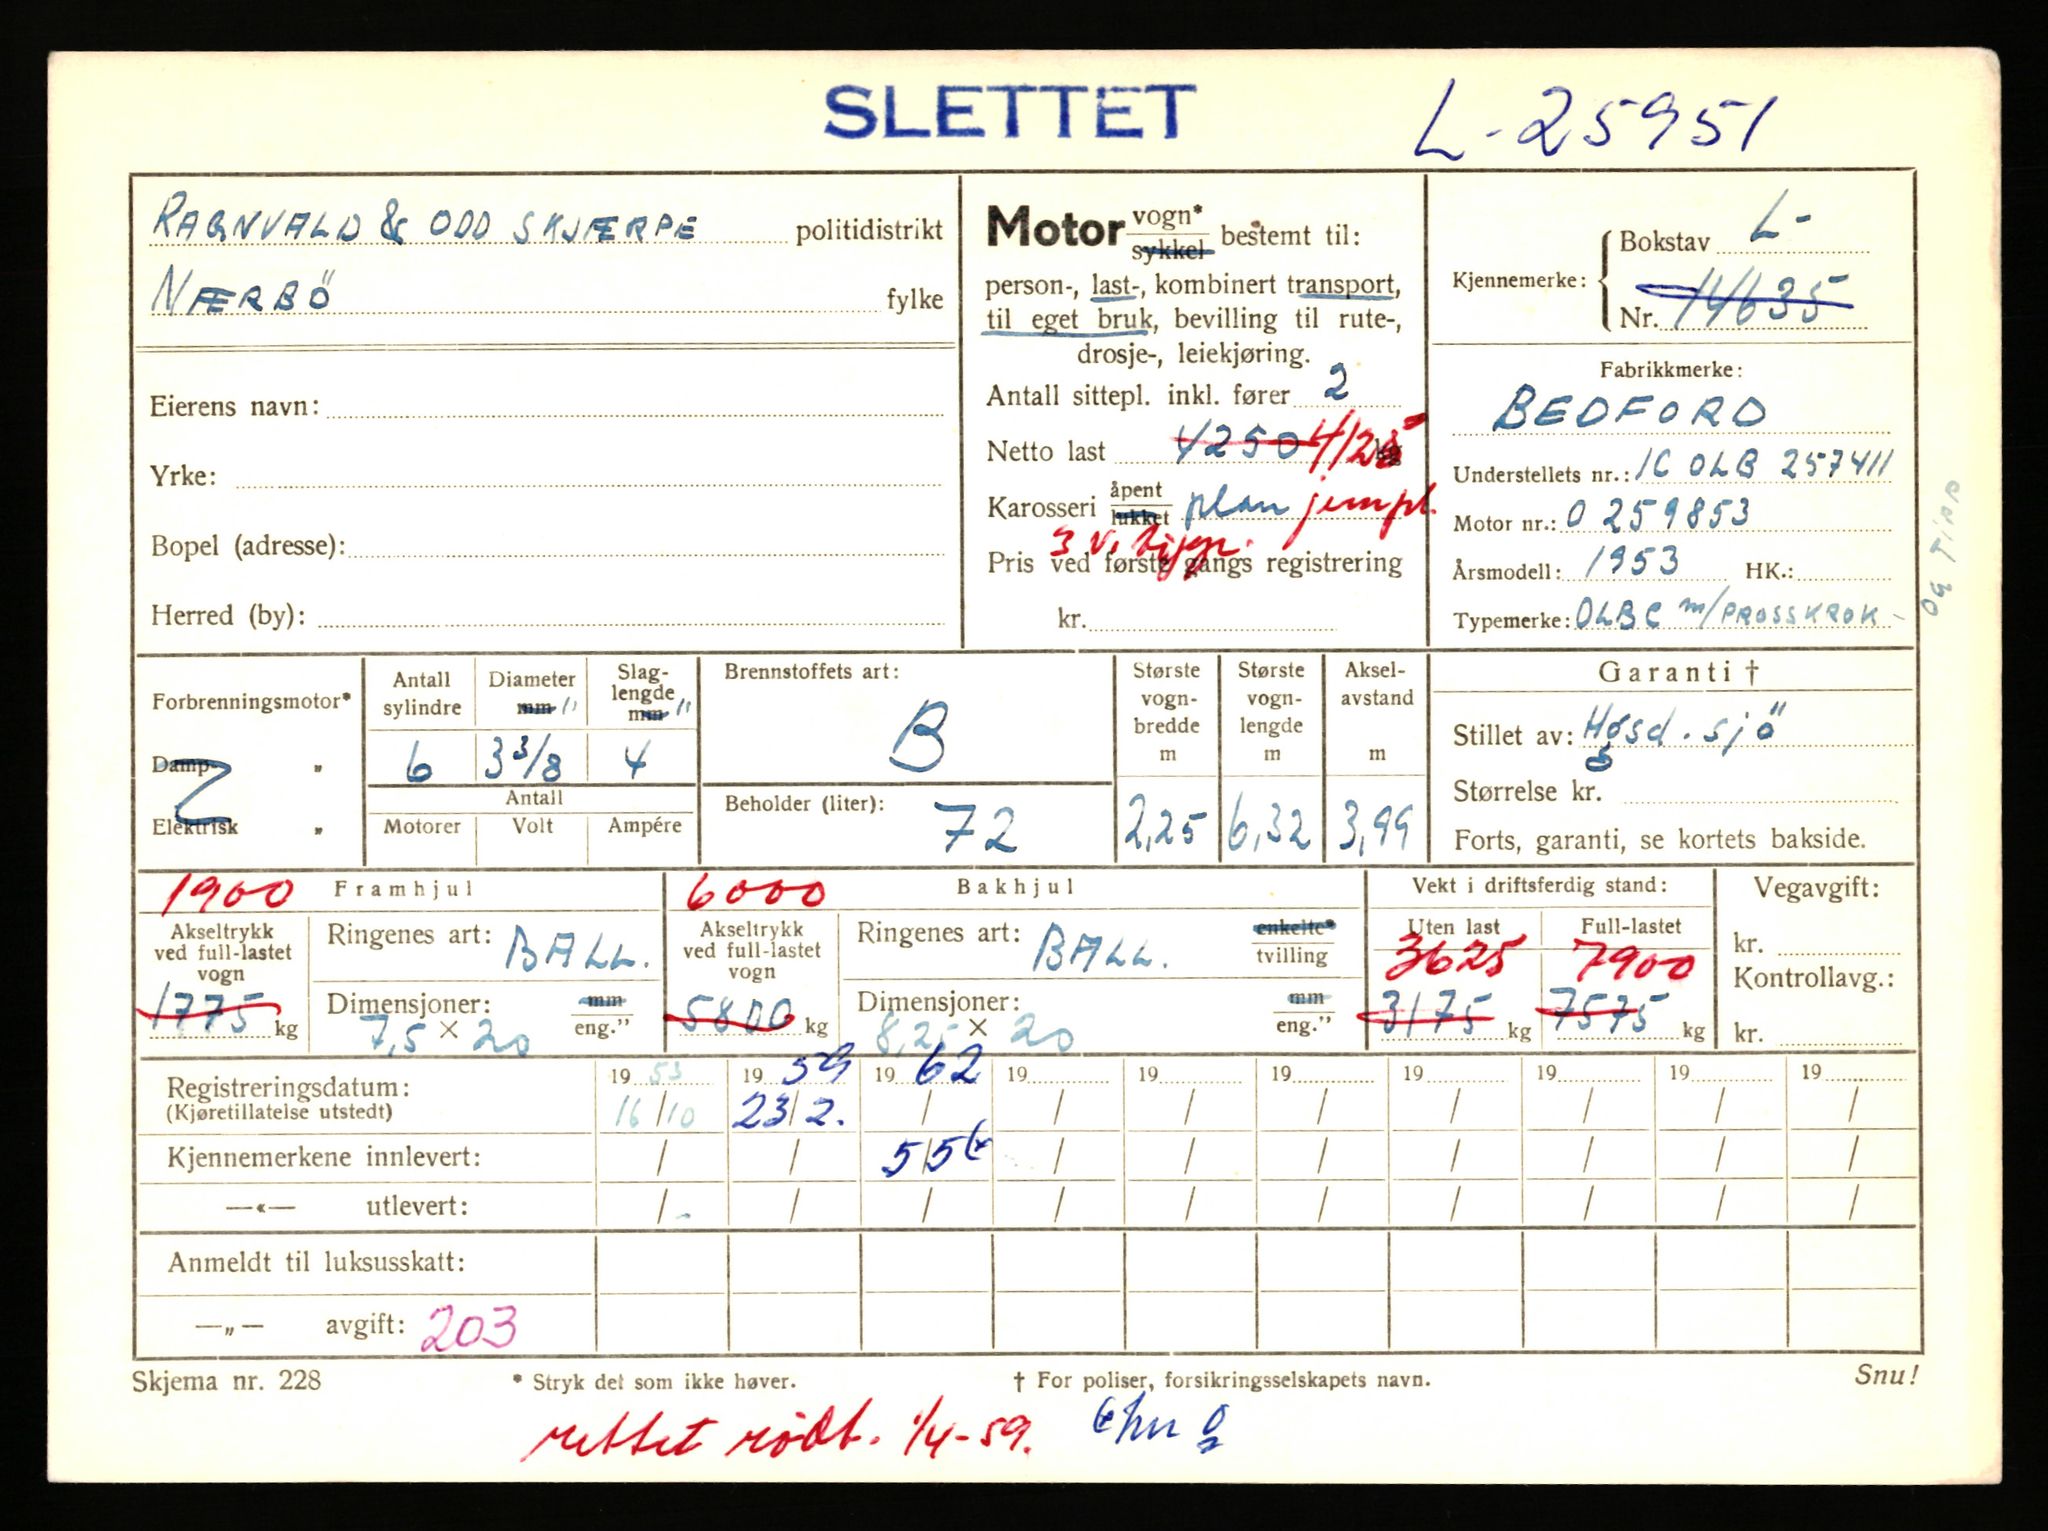 SLETTET L-25951
RAGNVALD & ODD SKJÆRPE politidistrikt
NÆRBÖ fylke
Eierens navn:
Yrke:
Bopel (adresse):
Herred (by):
Motor vogn* sykkel bestemt til:
person-, last-, kombinert transport,
til eget bruk, bevilling til rute-,
drosje-, leiekjøring.
Antall sittepl. inkl. fører 2
Netto last 4250 4125 kg
Karosseri åpent lukket plan jernpl.
3 v. tipp.
Pris ved første gangs registrering
kr.
Kjennemerke: Bokstav L-
Nr. 14635
Fabrikkmerke:
BEDFORD
Understellets nr.: 1C OLB 257411
Motor nr.: O 259853
Årsmodell: 1953 HK.:
Typemerke: OLBC m/PROSSKROK
og TIPP
Forbrenningsmotor*
Damp- „
Elektrisk „
Antall sylindre
6
Diameter mm "
3 3/8
Slag-lengde mm "
4
Antall
Motorer Volt Ampére
Brennstoffets art:
B
Beholder (liter):
72
Største vogn-bredde m
2,25
Største vogn-lengde m
6,32
Aksel-avstand m
3,99
Garanti †
Stillet av: Høsd. sjö
Størrelse kr.
Forts, garanti, se kortets bakside.
1900 Framhjul
Akseltrykk ved full-lastet vogn
1775 kg
Ringenes art: BALL.
Dimensjoner: mm eng."
7,5 × 20
6000 Bakhjul
Akseltrykk ved full-lastet vogn
5800 kg
Ringenes art: BALL. enkelte* tvilling
Dimensjoner: mm eng."
8,25 × 20
Vekt i driftsferdig stand:
Uten last Full-lastet
3625 7900
3175 kg 7575 kg
Vegavgift:
kr.
Kontrollavg.:
kr.
Registreringsdatum: 19 53 19 59 19 62 19 19 19 19 19 19 19
(Kjøretillatelse utstedt) 16/10 23/2. / / / / / / / /
Kjennemerkene innlevert: / / 5/5 / / / / / / /
—«— utlevert: / / / / / / / / / /
Anmeldt til luksusskatt:
—„— avgift: 203
Skjema nr. 228 * Stryk det som ikke høver. † For poliser, forsikringsselskapets navn. Snu!
rettet rødt. 1/4-59.